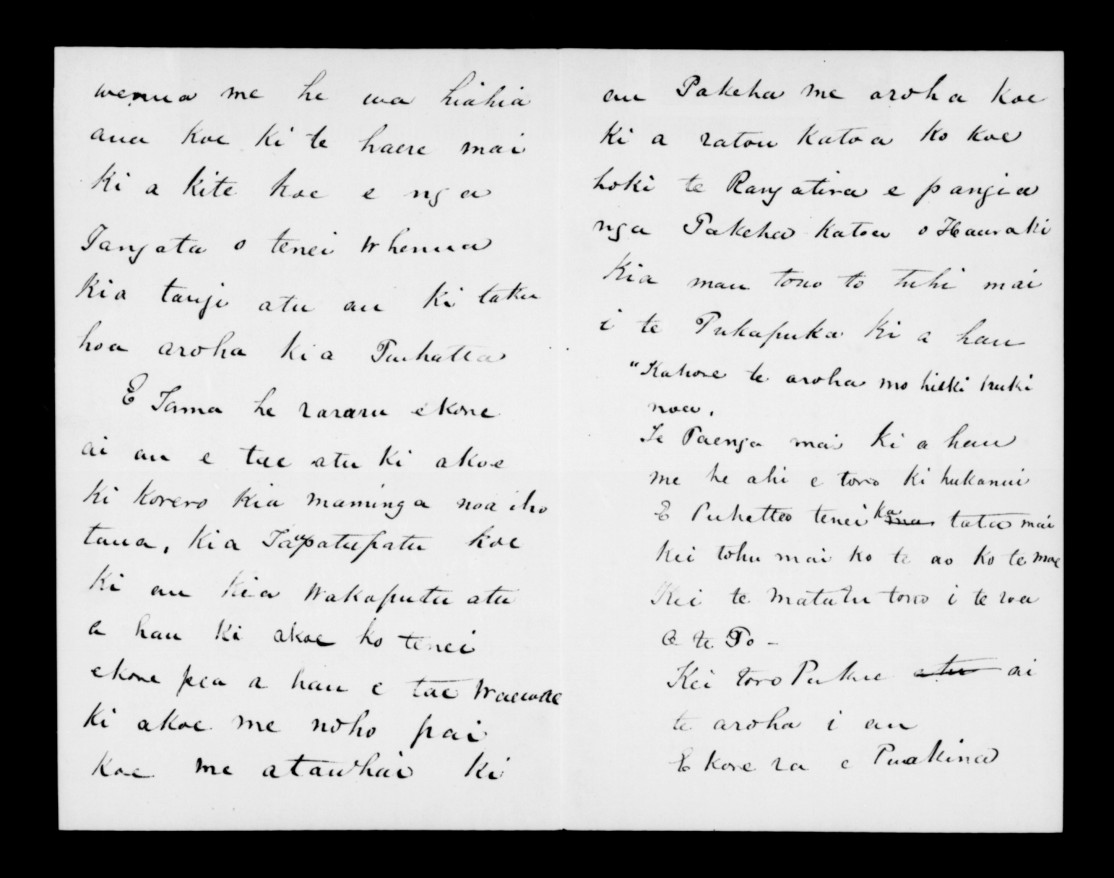 wenua me he wa hiahia
ana koe ki te haere mai
ki a kite koe e nga
Tangata o tenei Whenua
Kia tangi atu au ki taku
hoa aroha kia Puhatta
E Tama he raruru ekore
ai au e tae atu ki akoe
ki korero kia maminga noa iho
taua, kia Tapatupatu koe
ki au kia Wakaputu atu
a hau ki akoe ko tenei
ekore pea a hau e tae Waewae
ki akoe me noho pai
koe me atawhai ki
au Pakeha me aroha koe
ki a ratou katoa ko koe
hoki te Rangatira e pangia
nga Pakeha katoa o Hauraki
Kia mau tono to tuhi mai
i te Pukapuka ki a hau
"Kahore te aroha mo hikki huki
noa.
Te Paenga mai ki a hau
me he ahi e toro ki hukanui
E Puhatteo tenei ka tata mai
kei tohu mai ko te ao ko te moe
Kei te matatu tono i te roa
O te Po -
Kei toro Pukue atu ai
te aroha i au
E kore ra e Puakina